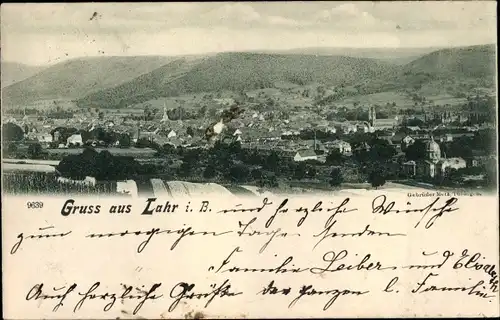 Gebrüder Metz, Tübingen
9639 Gruss aus Lahr i. B. und herzliche Wünsche
zum morgigen Tage, senden
Familie Leiber und Elsa
Auch herzliche Grüsse der ganzen l. Familie